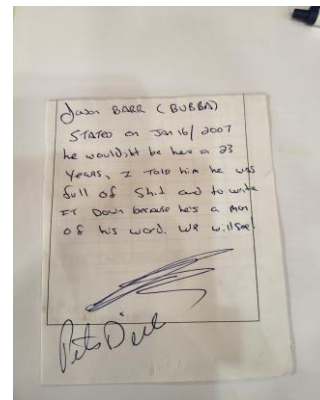 Jason BARR (BUBBA)
STATED on Jan 16/2007
he wouldiht be here a 23
Years, I Told him he was
full of Sh.t and to write
IT Down because he's a man
of his word. We will see!